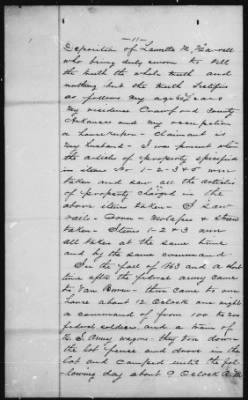 -11-
Deposition of Lauretta M. Harrell
who being duly sworn to tell
the truth the whole truth and
nothing but the truth testifies
as follows my age 42 years
My residence Crawford County
Arkansas and my occupation
a housekeeper - Claimant is
my husband - I was present when
the articles of property specified
in items No 1-2-3 & 5 were
taken and saw all the articles
of property charged in the
above items taken - I Saw
Corn - Molasses & Straw
taken - Items 1-2 & 3 were
all taken at the same time
and by the same command
In the fall of 1863 and a short
time after the federal army came
to Van Buren - there came to our
house about 12 Oclock one night
a command of from 100 to 200
federal soldiers and a train of
U.S. Army wagons - they tore down
the lot fence and drove in the
lot and camped until the fol-
lowing day about 9 Oclock A.M.